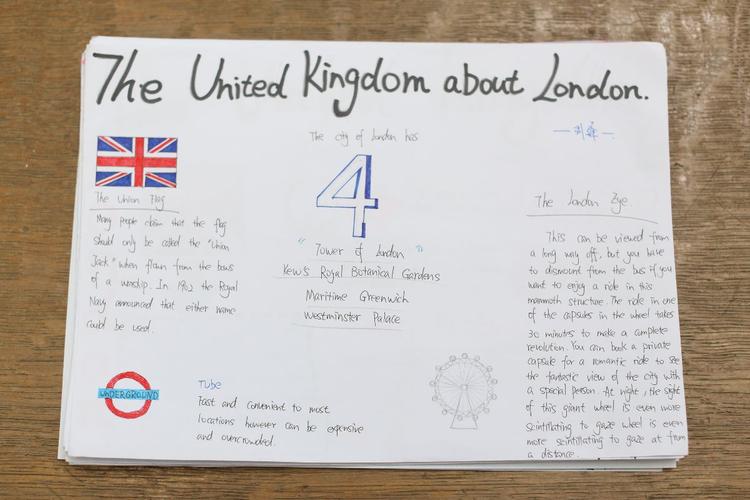 The United Kingdom about London.
The city of London has
4
" Tower of London "
Kew's Royal Botanical Gardens
Maritime Greenwich
Westminster Palace
The Union Flag
Many people claim that the flag
should only be called the "Union
Jack" when flown from the bows
of a warship. In 1902 the Royal
Navy announced that either name
could be used.
UNDERGROUND
Tube
Fast and convenient to most
locations however can be expensive
and overcrowded.
The London Eye.
This can be viewed from
a long way off, but you have
to dismound from the bus if you
want to enjoy a ride in this
mammoth structure. The ride in one
of the capsules in the wheel takes
30 minutes to make a complete
revolution. You can book a private
capsule for a romantic ride to see
the fantastic view of the city with
a special person. At night, the sight
of this giant wheel is even more
scintillating to gaze wheel is even
more scintillating to gaze at from
a distance.